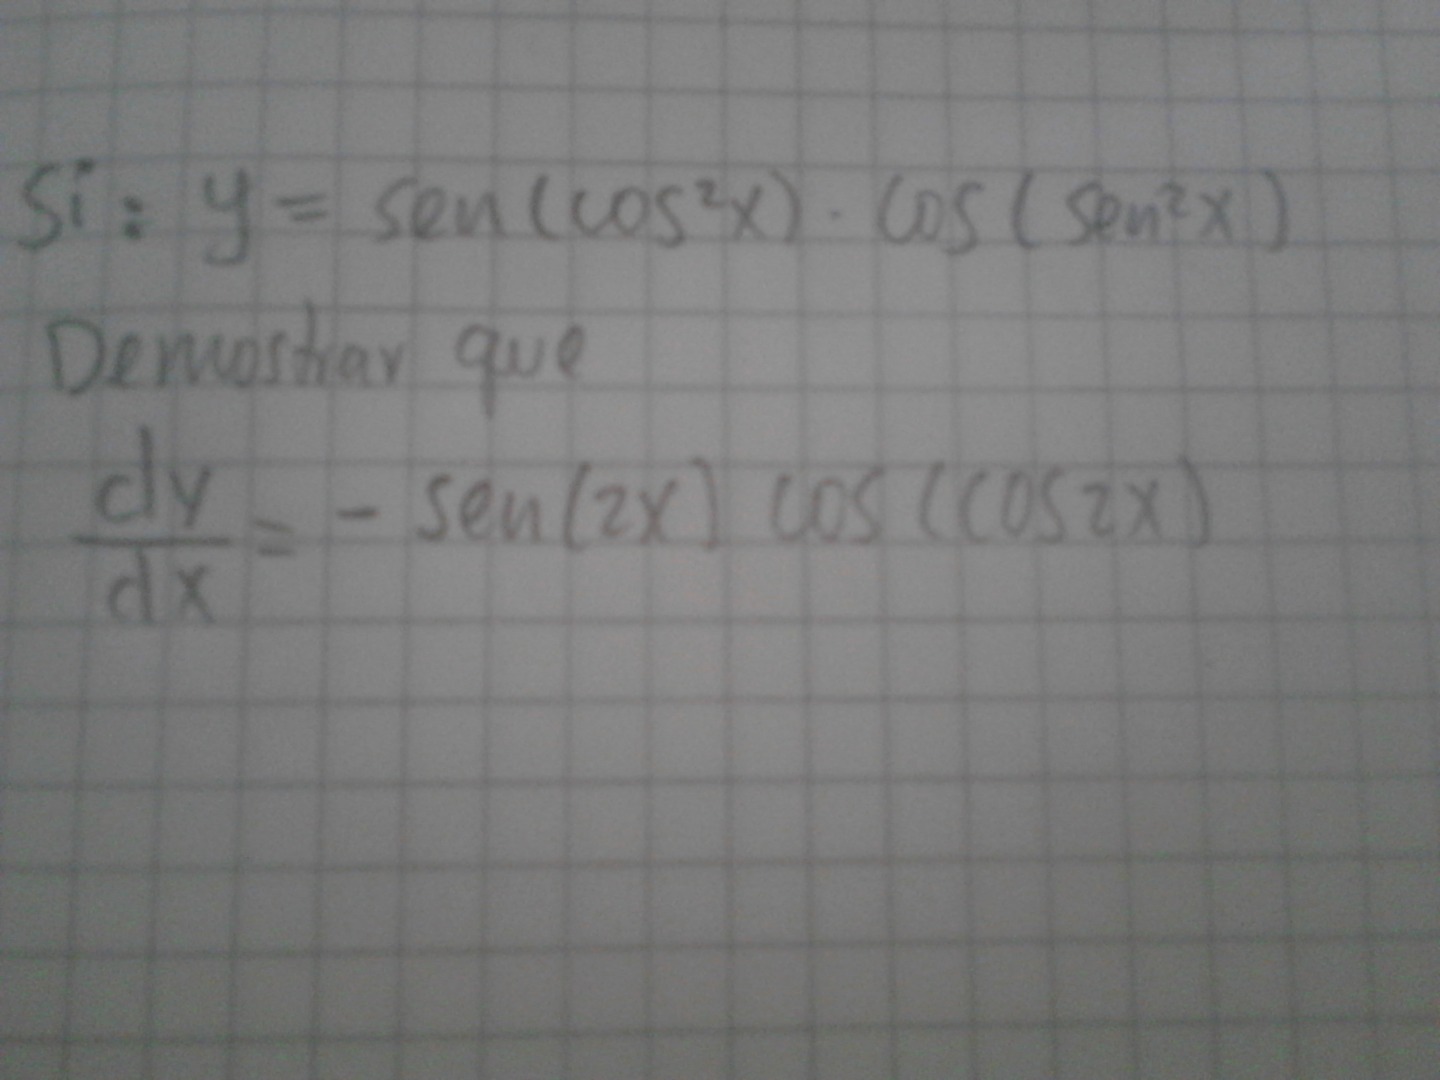 Si: y = sen(cos²x) · cos(sen²x)
Demostrar que
dy/dx = - sen(2x) cos(cos2x)